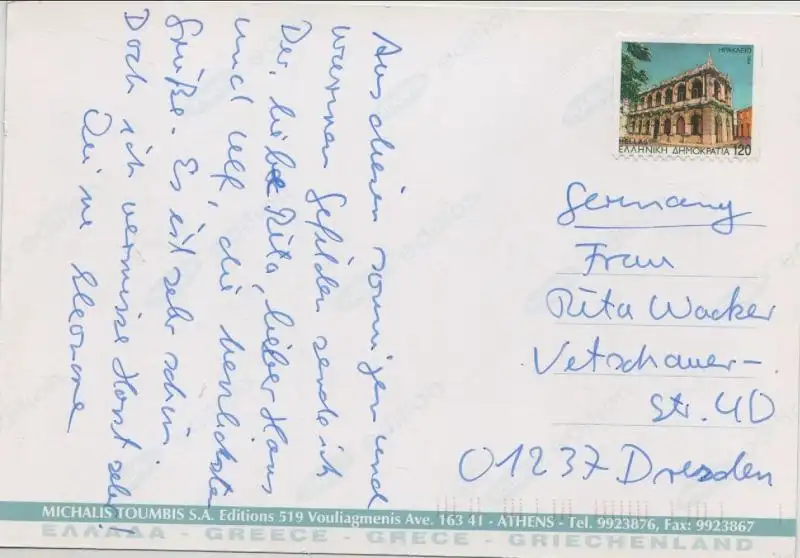 Aus diesen sonnigen und
warmen Gefilden sende ich
Dir, liebe Rita, lieber Hans
und Ulf, die herzlichsten
Grüße. Es ist sehr schön
Doch ich vermisse Horst sehr!
Deine Eleonore
ΗΡΑΚΛΕΙΟ
HELLAS
ΕΛΛΗΝΙΚΗ ΔΗΜΟΚΡΑΤΙΑ 120
Germany
Frau
Rita Wacker
Vetschauer-
Str. 40
01237 Dresden
MICHALIS TOUMBIS S.A. Editions 519 Vouliagmenis Ave. 163 41 - ATHENS - Tel. 9923876, Fax: 9923867
ΕΛΛΑΔΑ - GREECE - GRECE - GRIECHENLAND